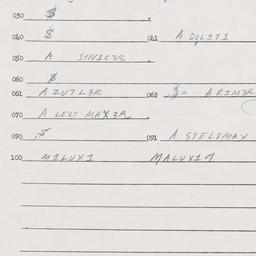 030 $
040 $ 041 A DOL1T1
050 A SNV1C3R
060 $
061 A ZUTL3R 062 $= A R1M3R
070 A LEXT MAX3R
090 $ 091 A STELPMAY
100 M1LUX1 MALUV17